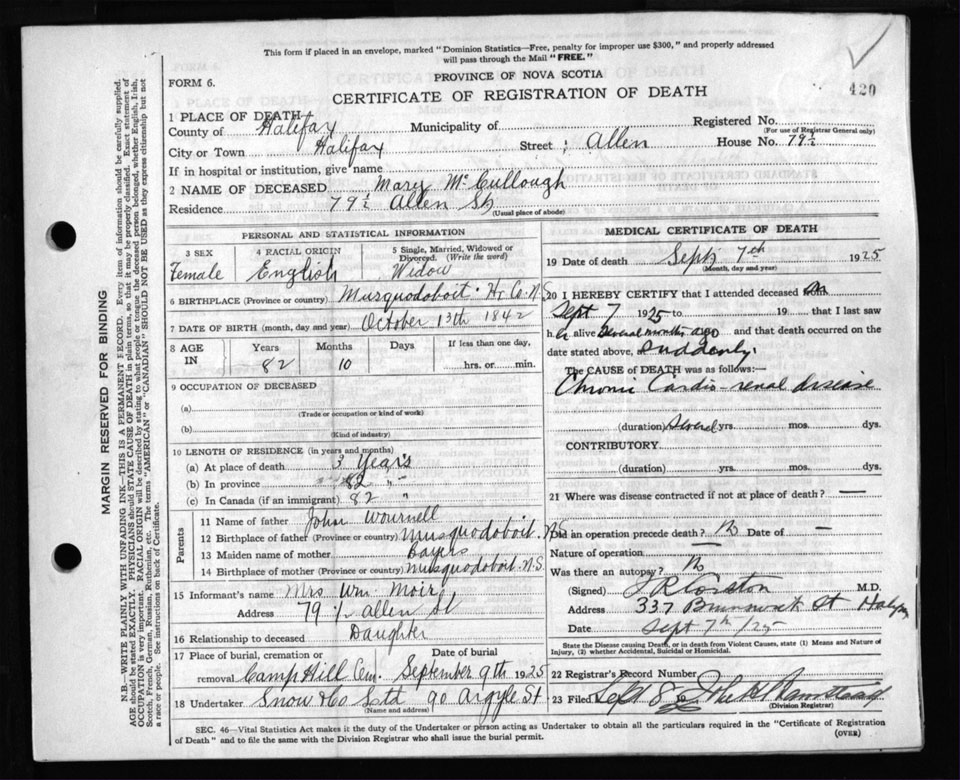 This form if placed in an envelope, marked "Dominion Statistics—Free, penalty for improper use $300," and properly addressed
will pass through the Mail "FREE."
FORM 6.
PROVINCE OF NOVA SCOTIA
CERTIFICATE OF REGISTRATION OF DEATH
420
1 PLACE OF DEATH
County of Halifax Municipality of Registered No.
(For use of Registrar General only)
City or Town Halifax Street ; Allen House No. 79½
If in hospital or institution, give name
2 NAME OF DECEASED Mary McCullough
Residence 79½ Allen St.
(Usual place of abode)
PERSONAL AND STATISTICAL INFORMATION
3 SEX 4 RACIAL ORIGIN 5 Single, Married, Widowed or Divorced. (Write the word)
Female English Widow
6 BIRTHPLACE (Province or country) Musquodoboit Hx Co. N.S.
7 DATE OF BIRTH (month, day and year) October 13th 1842
8 AGE IN Years Months Days If less than one day,
82 10 hrs. or min.
9 OCCUPATION OF DECEASED
(a)
(Trade or occupation or kind of work)
(b)
(Kind of industry)
10 LENGTH OF RESIDENCE (in years and months)
(a) At place of death 3 Years
(b) In province 82 "
(c) In Canada (if an immigrant) 82 "
Parents
11 Name of father John Wournell
12 Birthplace of father (Province or country) Musquodoboit. N.S.
13 Maiden name of mother Bayers
14 Birthplace of mother (Province or country) Musquodoboit. N.S.
15 Informant's name Mrs Wm. Moir
Address 79½ Allen St
16 Relationship to deceased Daughter
17 Place of burial, cremation or removal Camp Hill Cem. Date of burial September 9th 1925
18 Undertaker Snow & Co Ltd 90 Argyle St
(Name and address)
MEDICAL CERTIFICATE OF DEATH
19 Date of death Sept 7th 1925
(Month, day and year)
20 I HEREBY CERTIFY that I attended deceased from on
Sept 7 1925 to 19 that I last saw
h er alive several months ago and that death occurred on the
date stated above, at suddenly.
The CAUSE of DEATH was as follows:—
Chronic Cardio-renal disease
(duration) several yrs. mos. dys.
CONTRIBUTORY.
(duration) yrs. mos. dys.
21 Where was disease contracted if not at place of death? —
Did an operation precede death? No Date of —
Nature of operation —
Was there an autopsy? No
(Signed) J R Corston M.D.
Address 337 Brunswick St Halifax
Date Sept 7th/25
State the Disease causing Death, or in death from Violent Causes, state (1) Means and Nature of
Injury, (2) whether Accidental, Suicidal or Homicidal.
22 Registrar's Record Number
23 Filed Sept 8 19
(Division Registrar)
SEC. 46—Vital Statistics Act makes it the duty of the Undertaker or person acting as Undertaker to obtain all the particulars required in the "Certificate of Registration
of Death" and to file the same with the Division Registrar who shall issue the burial permit.
(OVER)
MARGIN RESERVED FOR BINDING
N.B.—WRITE PLAINLY WITH UNFADING INK—THIS IS A PERMANENT RECORD. Every item of information should be carefully supplied.
AGE should be stated EXACTLY. PHYSICIANS should STATE CAUSE OF DEATH in plain terms, so that it may be properly classified. Exact statement of
OCCUPATION is very important. RACIAL ORIGIN will be described by stating to what people or tongue the deceased person belonged, whether English, Irish,
Scotch, French, German, Russian, Ruthenian, etc. The terms "AMERICAN" or "CANADIAN" SHOULD NOT BE USED as they express citizenship but not
a race or people. See instructions on back of Certificate.